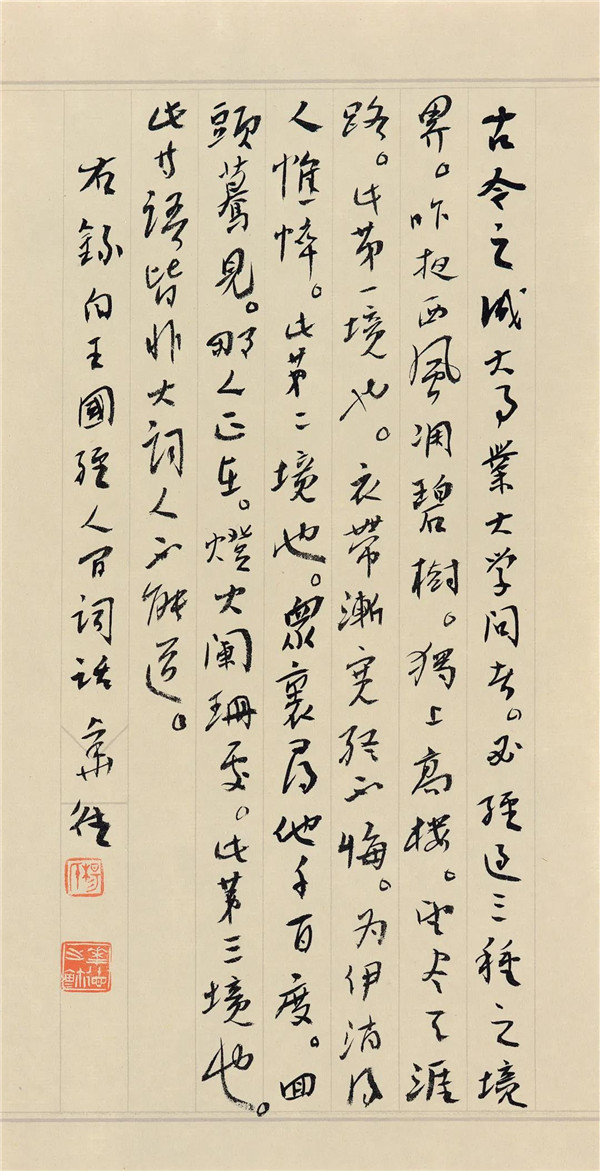 古今之成大事業大学问者。必經過三種之境
界。昨夜西風凋碧樹。獨上高樓。望尽天涯
路。此第一境也。衣帶漸寬終不悔。为伊消得
人憔悴。此第二境也。眾裏尋他千百度。回
頭驀見。那人正在。燈火阑珊處。此第三境也。
此等語皆非大詞人不能道。
右錄自王國維人间詞話 華德
楊